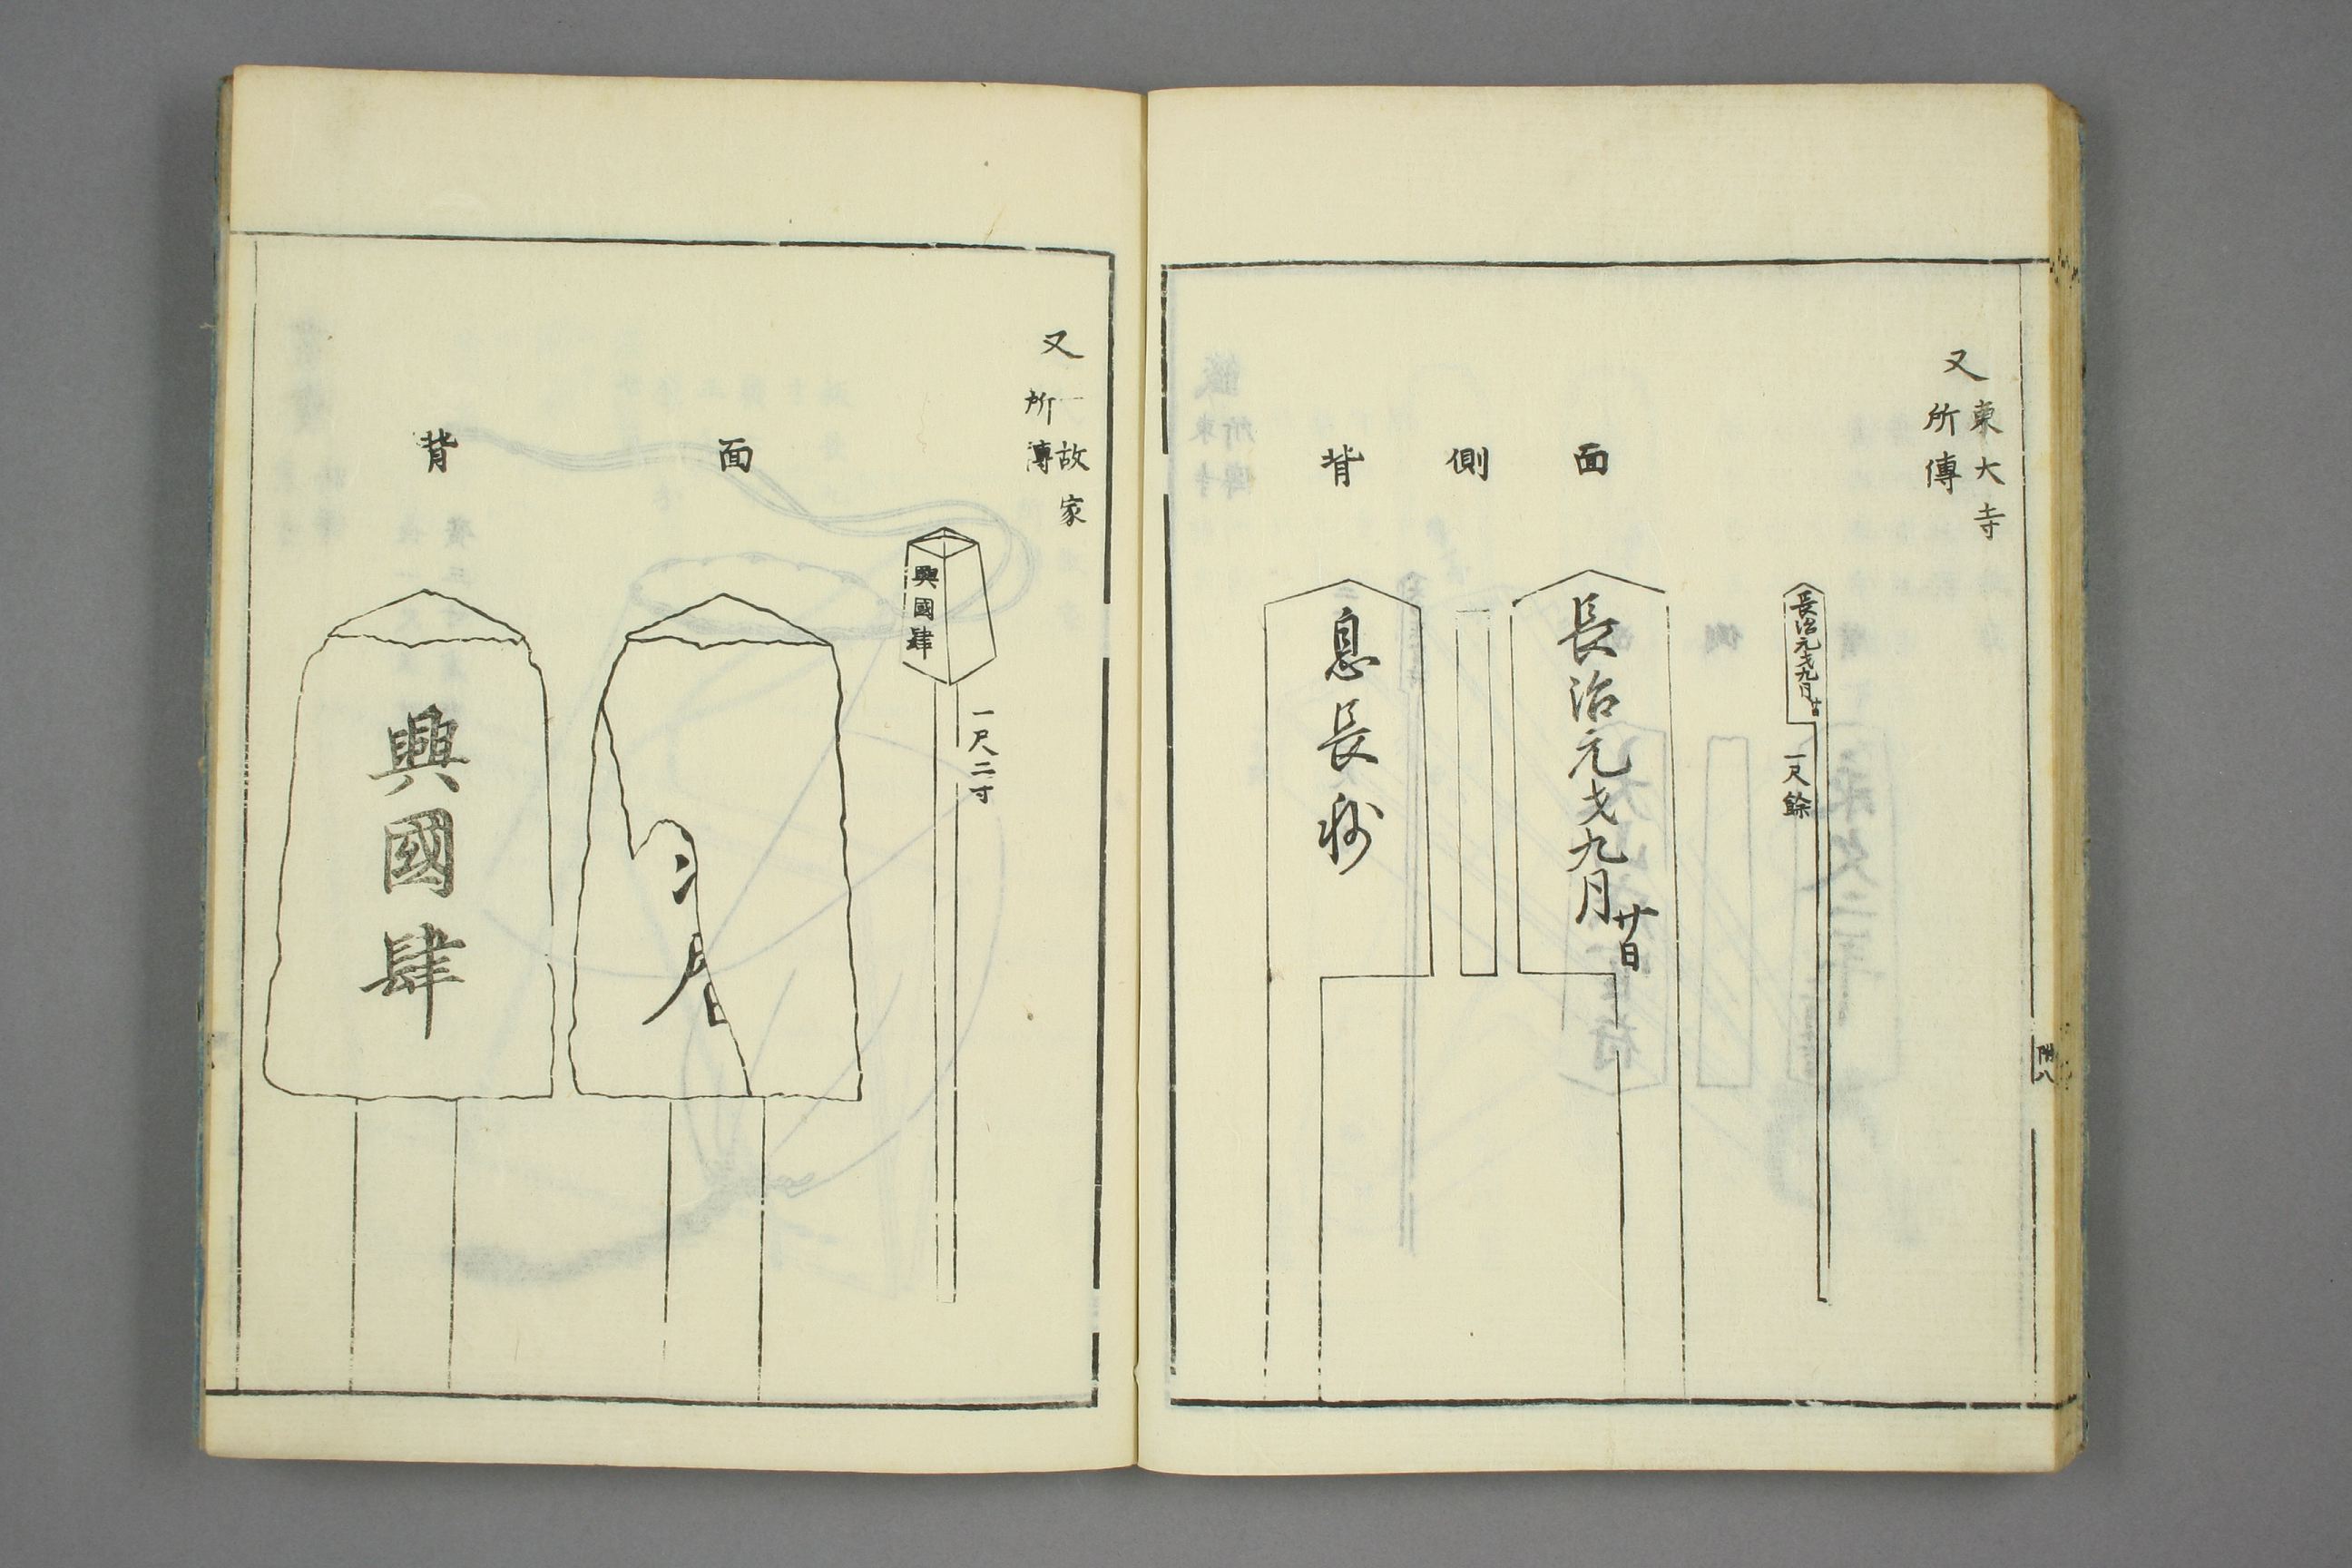 又
東大寺
所傳
長治元
九月
廿日
一尺餘
面
長治元
九月
廿日
側
背
息長
附八
又
一故家
所傳
興國肆
一尺二寸
面
背
興國肆